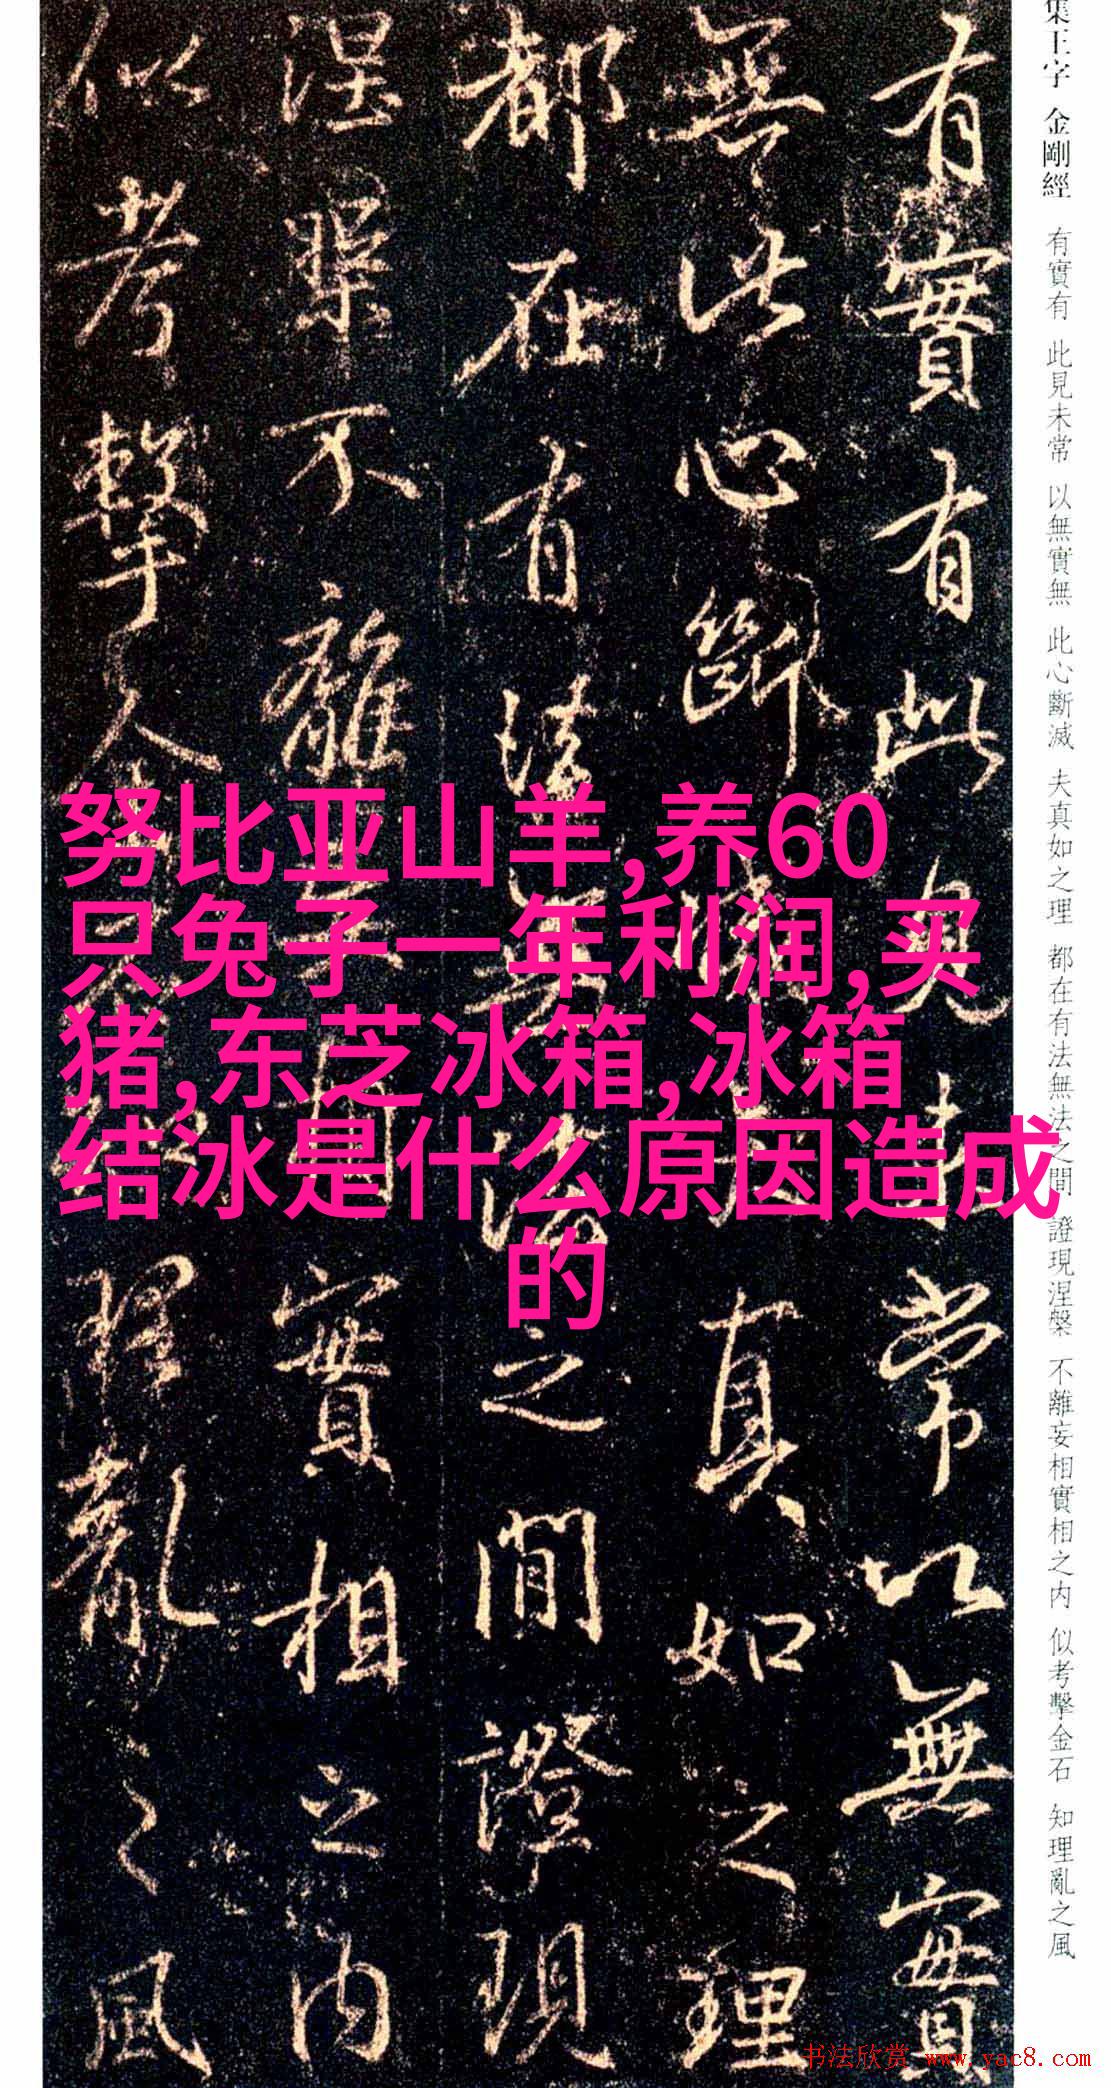 集王字 金剛經 有實有 此見未常 以無實無 此心斷滅 夫真如之理 都在有法無法之間 證現涅槃 不離妄相實相之内 似考擊金石 知理亂之風
有實有此見未常以無實
無此心斷滅夫真如之理
都在有法無法之間證現
涅槃不離妄相實相之内
似考擊金石知理亂之風
努比亚山羊,养60
只兔子一年利润,买
猪,东芝冰箱,冰箱
结冰是什么原因造成
的
书法欣赏 www.yac8.com